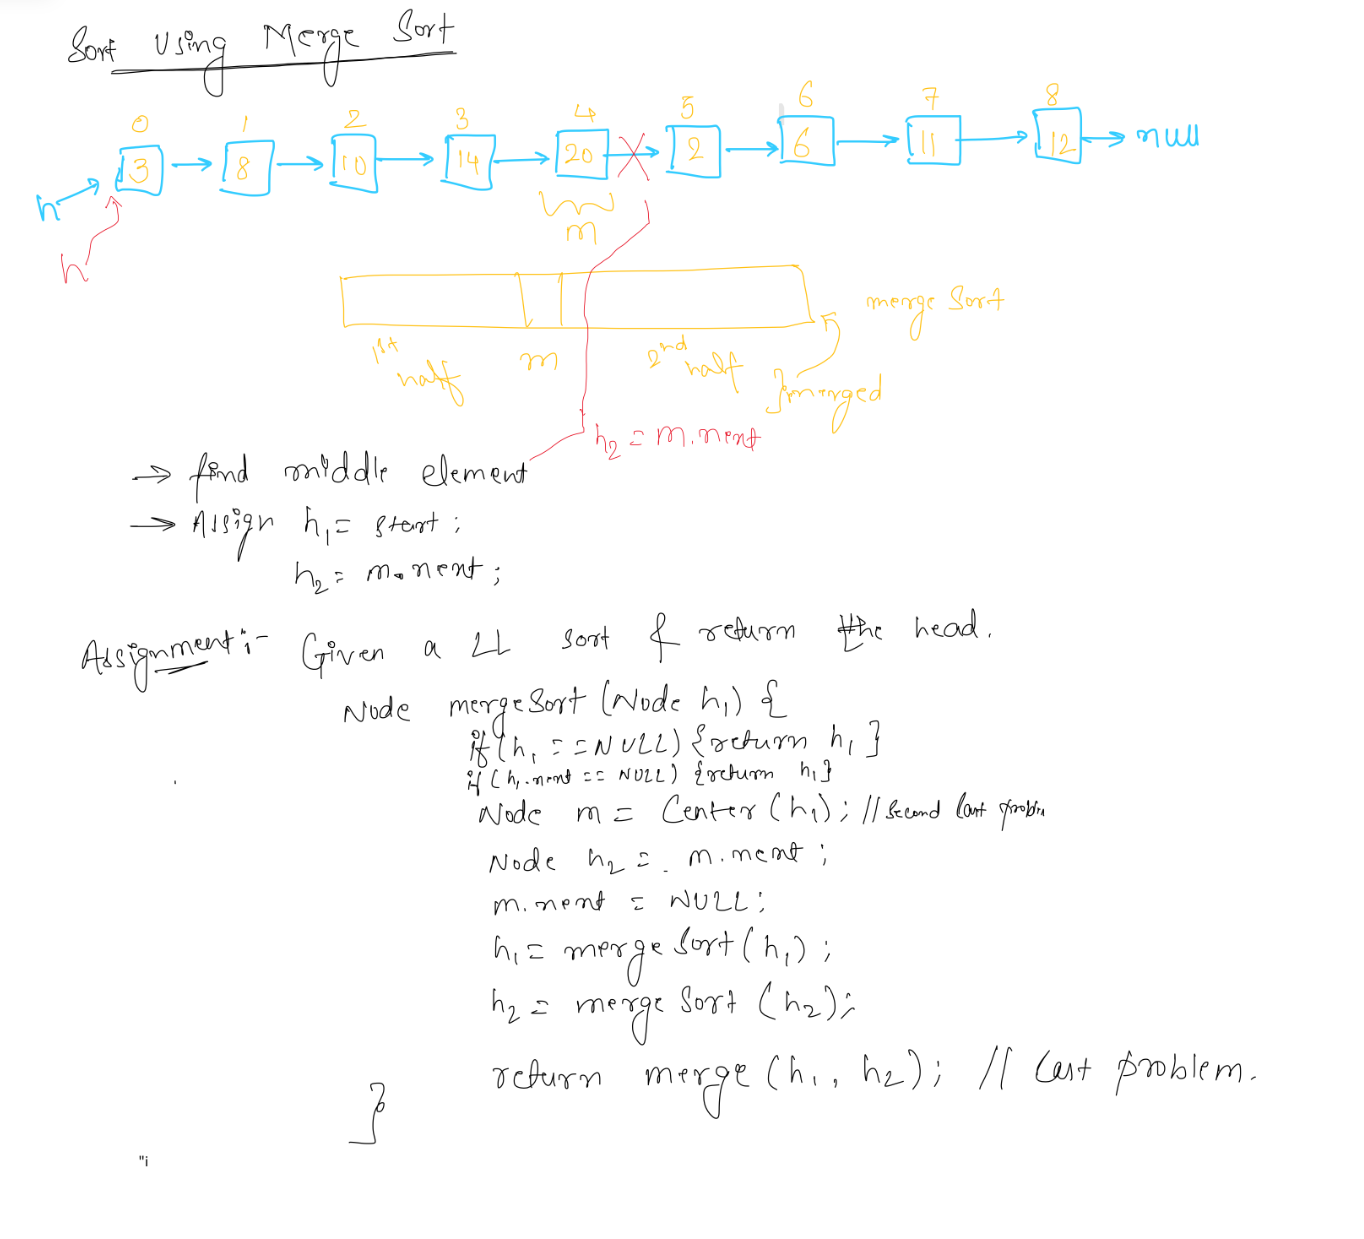 Sort Using Merge Sort
0 1 2 3 4 5 6 7 8
3 8 10 14 20 2 6 11 12 null
h
h
m
merge Sort
1st half m 2nd half
merged
h2 = m.next
→ find middle element
→ Assign h1 = start;
h2 = m.next;
Assignment:- Given a LL sort & return the head.
Node mergeSort (Node h1) {
if (h1 == NULL) {return h1}
if (h1.next == NULL) {return h1}
Node m = Center (h1); // Second last problm
Node h2 = m.next;
m.next = NULL;
h1 = merge Sort (h1);
h2 = merge Sort (h2);
return merge (h1, h2); // last problem.
}
"i